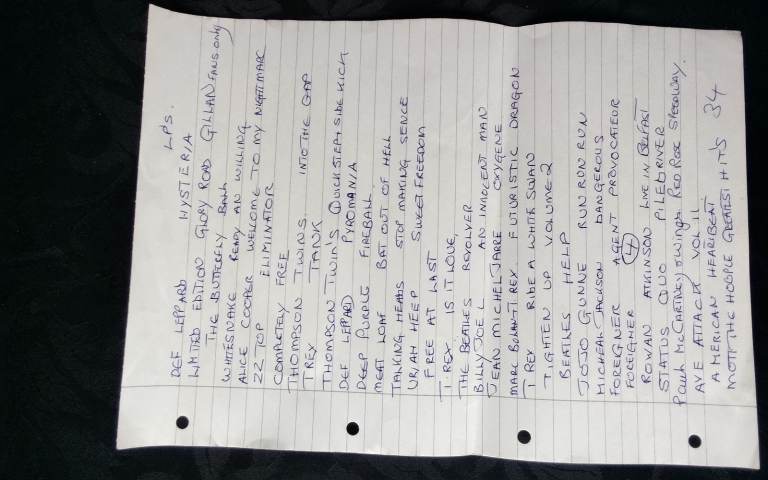 LPS.
DEF LEPPARD HYSTERIA
LIMITED EDITION GLORY ROAD GILLAN FANS only
THE BUTTERFLY BALL
WHITESNAKE READY AN WILLING
ALICE COOPER WELCOME TO MY NIGHTMARE
ZZ TOP ELIMINATOR
COMPLETELY FREE
THOMPSON TWINS. INTO THE GAP
TREX TANX
THOMPSON TWIN'S QUICK STEP + SIDE KICK
DEF LEPPARD PYROMANIA
DEEP PURPLE FIREBALL
MEAT LOAF BAT OUT OF HELL
TALKING HEADS STOP MAKING SENCE
URIAH HEEP SWEET FREEDOM
FREE AT LAST
T. REX IS IT LOVE,
THE BEATLES REVOLVER
BILLY JOEL AN INNOCENT MAN
JEAN MICHEL JARRE OXYGENE
MARC BOLAN T. REX FUTURISTIC DRAGON
T REX RIDE A WHITE SWAN
TIGHTEN UP VOLUME 2
BEATLES HELP
JO JO GUNNE RUN RUN RUN
MICHEAL JACKSON DANGEROUS
FOREIGNER AGENT PROVOCATEUR
FOREIGNER 4
ROWAN ATKINSON LIVE IN BELFAST
STATUS QUO PILEDRIVER
Paul McCARTNEY & Wings RED ROSE SPEEDWAY.
AXE ATTACK VOL II
AMERICAN HEARTBEAT
MOTT THE HOOPLE GREATEST HITS 34